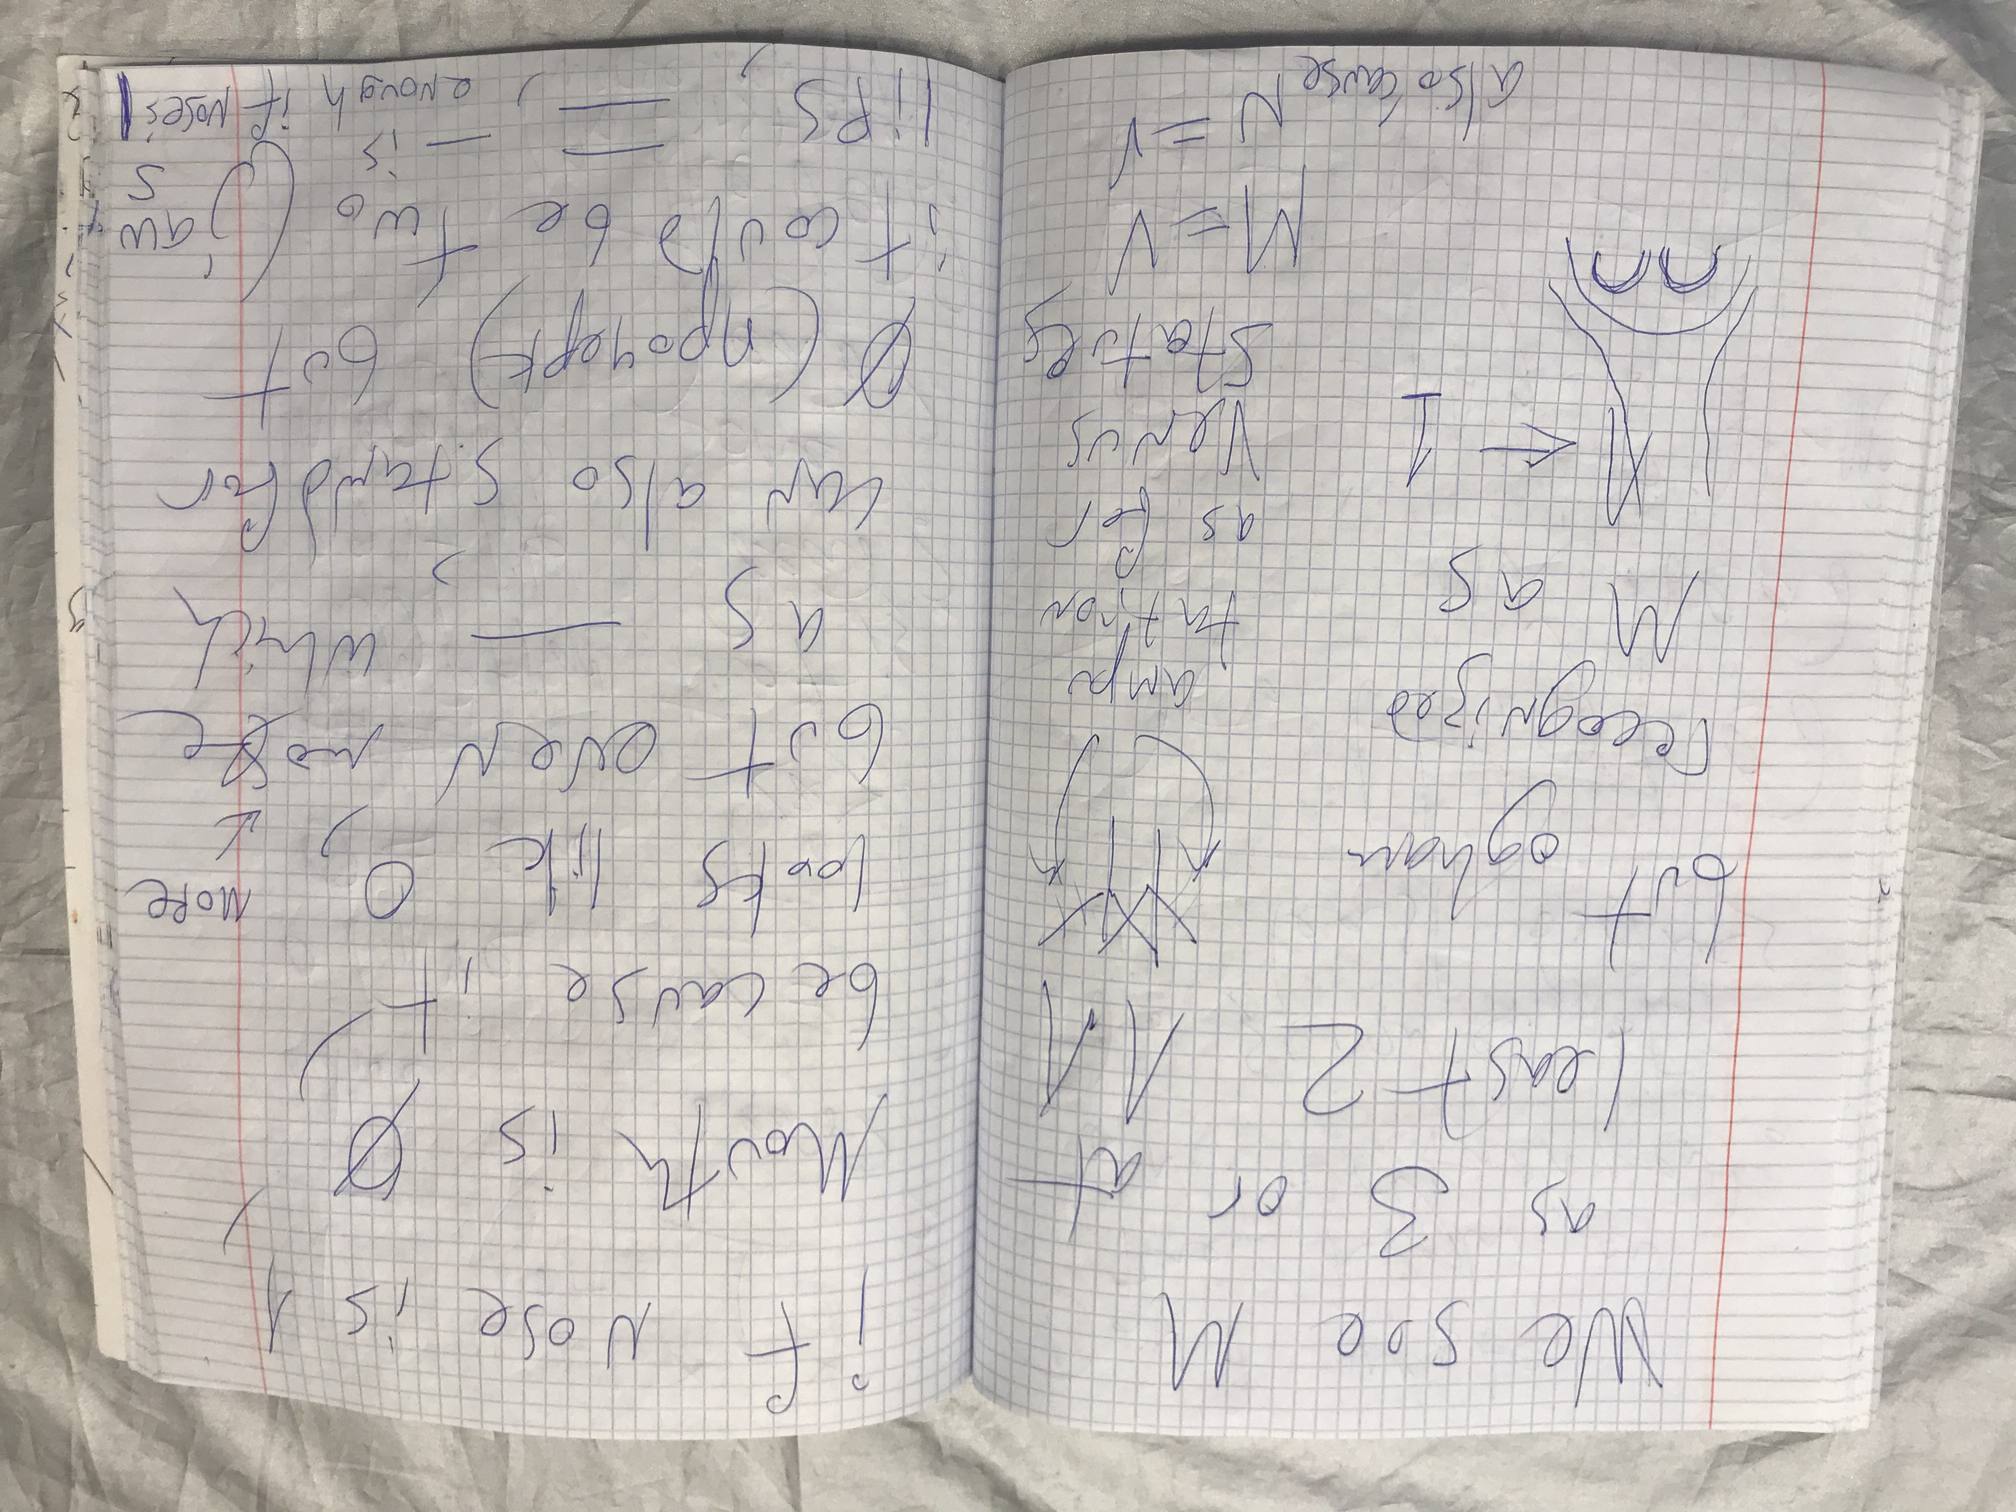 We see M
as 3 or at
least 2 11
but ogham
recognized
M as
1
ampu
tation
as for
Venus
statues
M = V
N = V
also cause
if nose is 1,
Mouth is Ø,
because it
looks like 0, MORE
but even more
as — , which
can also stand for
Ø (прочерк) but
it could be two (jaws
lips, = , — is enough if Nose is 1